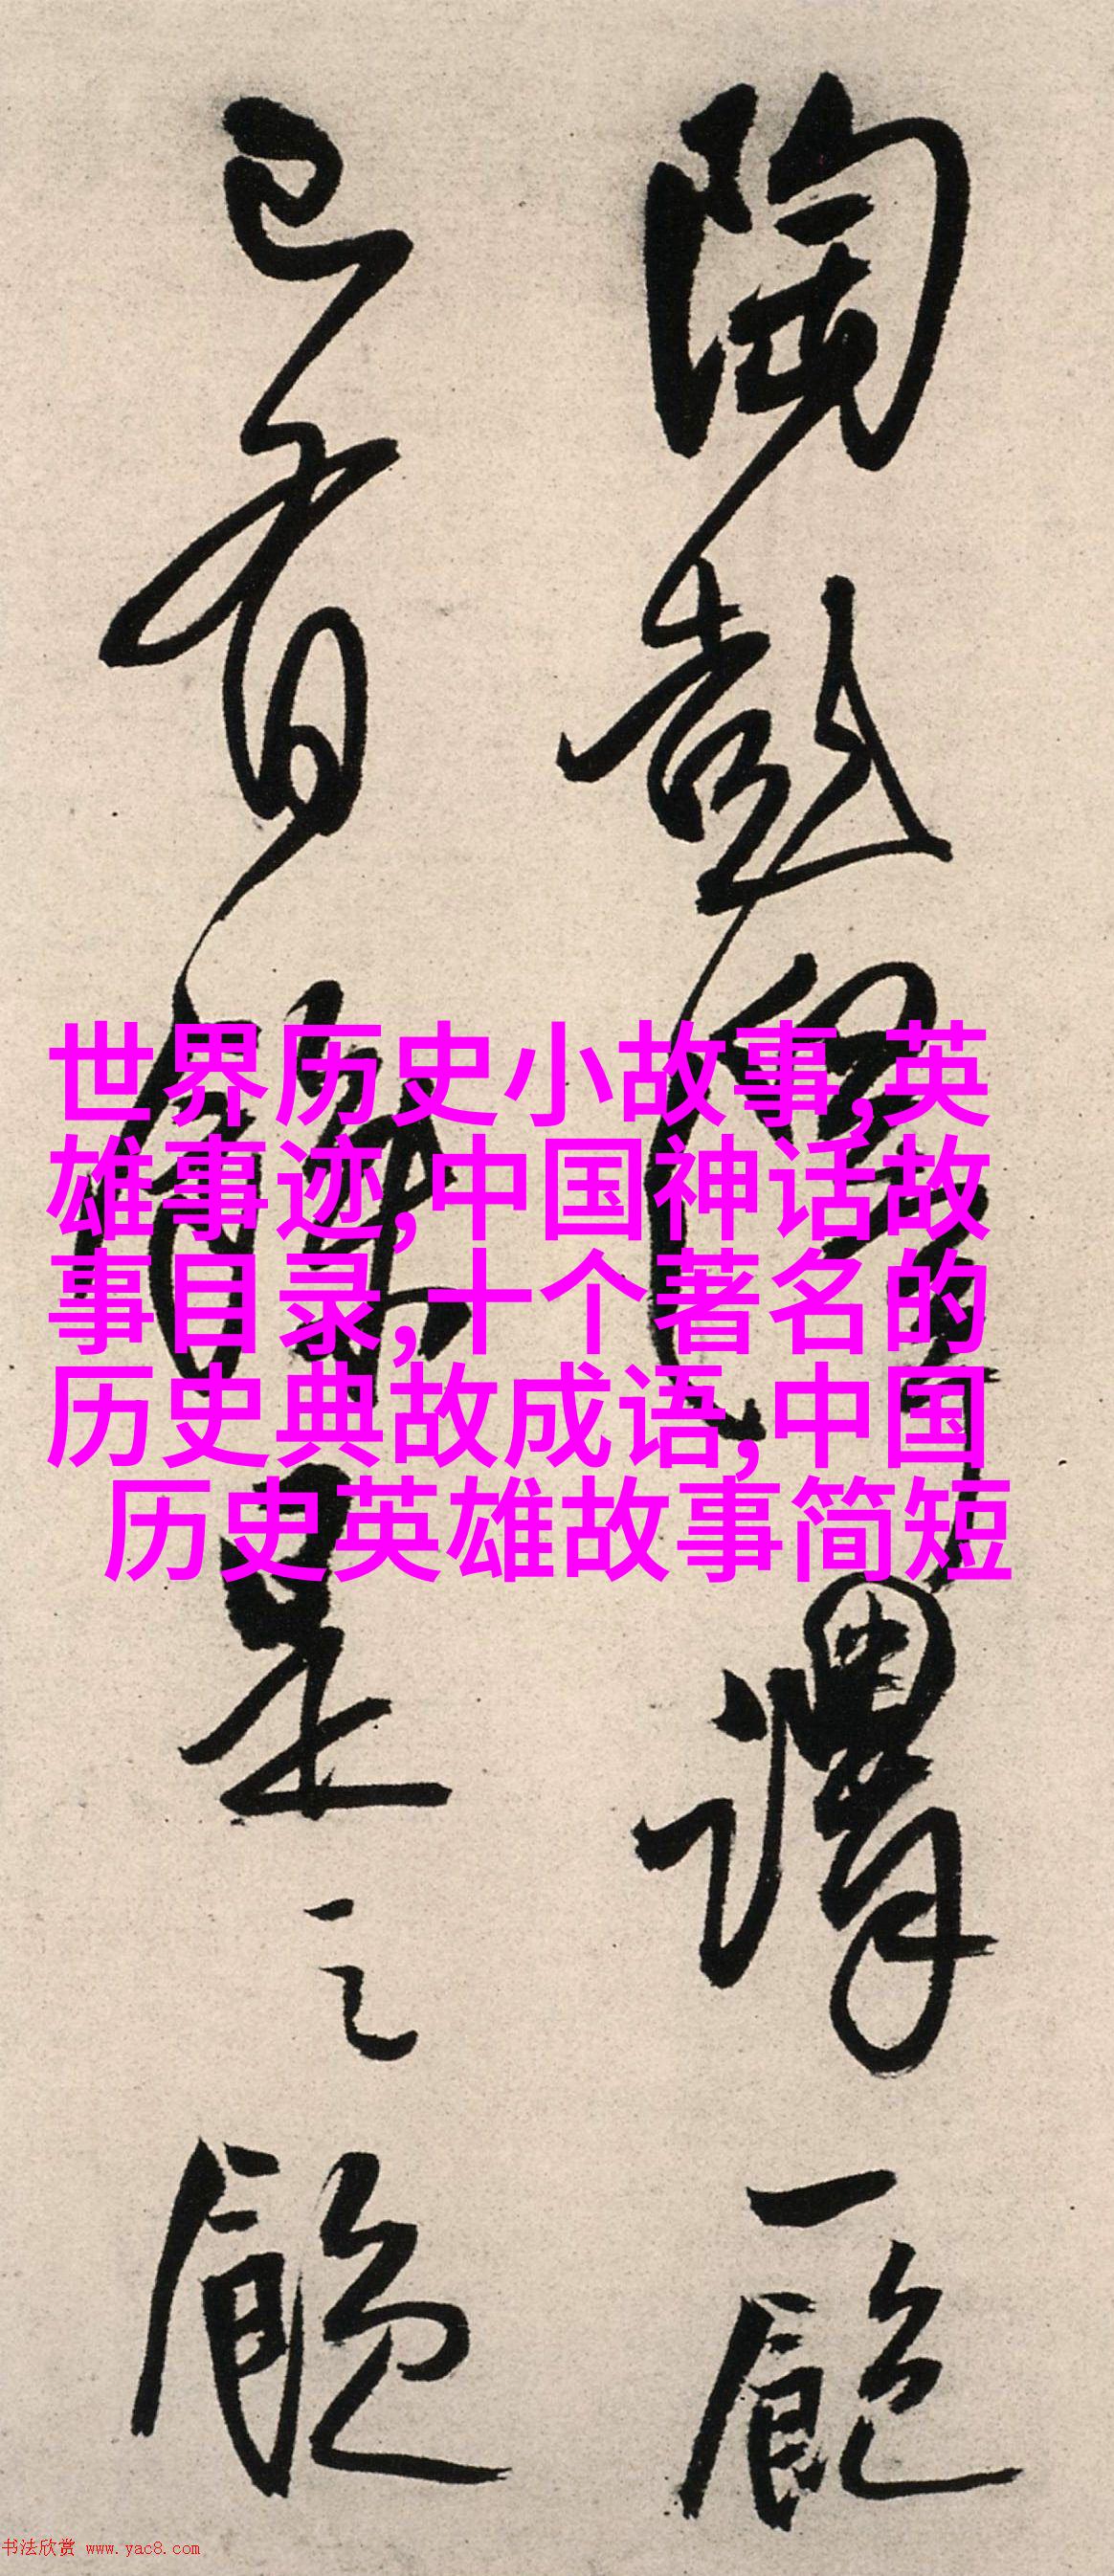 世界历史小故事,英
雄事迹,中国神话故
事目录,十个著名的
历史典故成语,中国
历史英雄故事简短
陶彭澤謂一飽
已有餘是之
书法欣赏 www.yac8.com